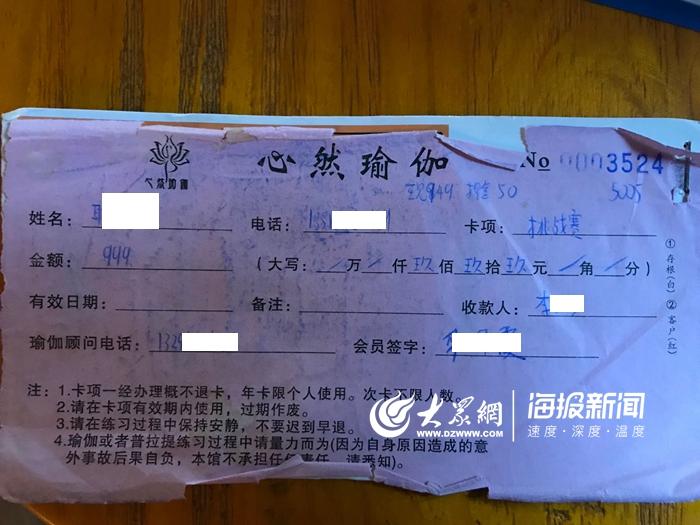 心然瑜伽
心然瑜伽 No 0003524
49 押金50 5005
姓名： 电话： 卡项：挑战赛
金额：999 （大写：/万/仟玖佰玖拾玖元/角/分）
有效日期： 备注： 收款人：李
瑜伽顾问电话：132 会员签字：
①存根(白)②客户(红)
注：1.卡项一经办理概不退卡，年卡限个人使用。次卡不限人数。
2.请在卡项有效期内使用，过期作废。
3.请在练习过程中保持安静，不要迟到早退。
4.瑜伽或者普拉提练习过程中请量力而为(因为自身原因造成的意
外事故后果自负，本馆不承担任何责任，请悉知)。
大众网 海报新闻
www.dzwww.com 速度·深度·温度